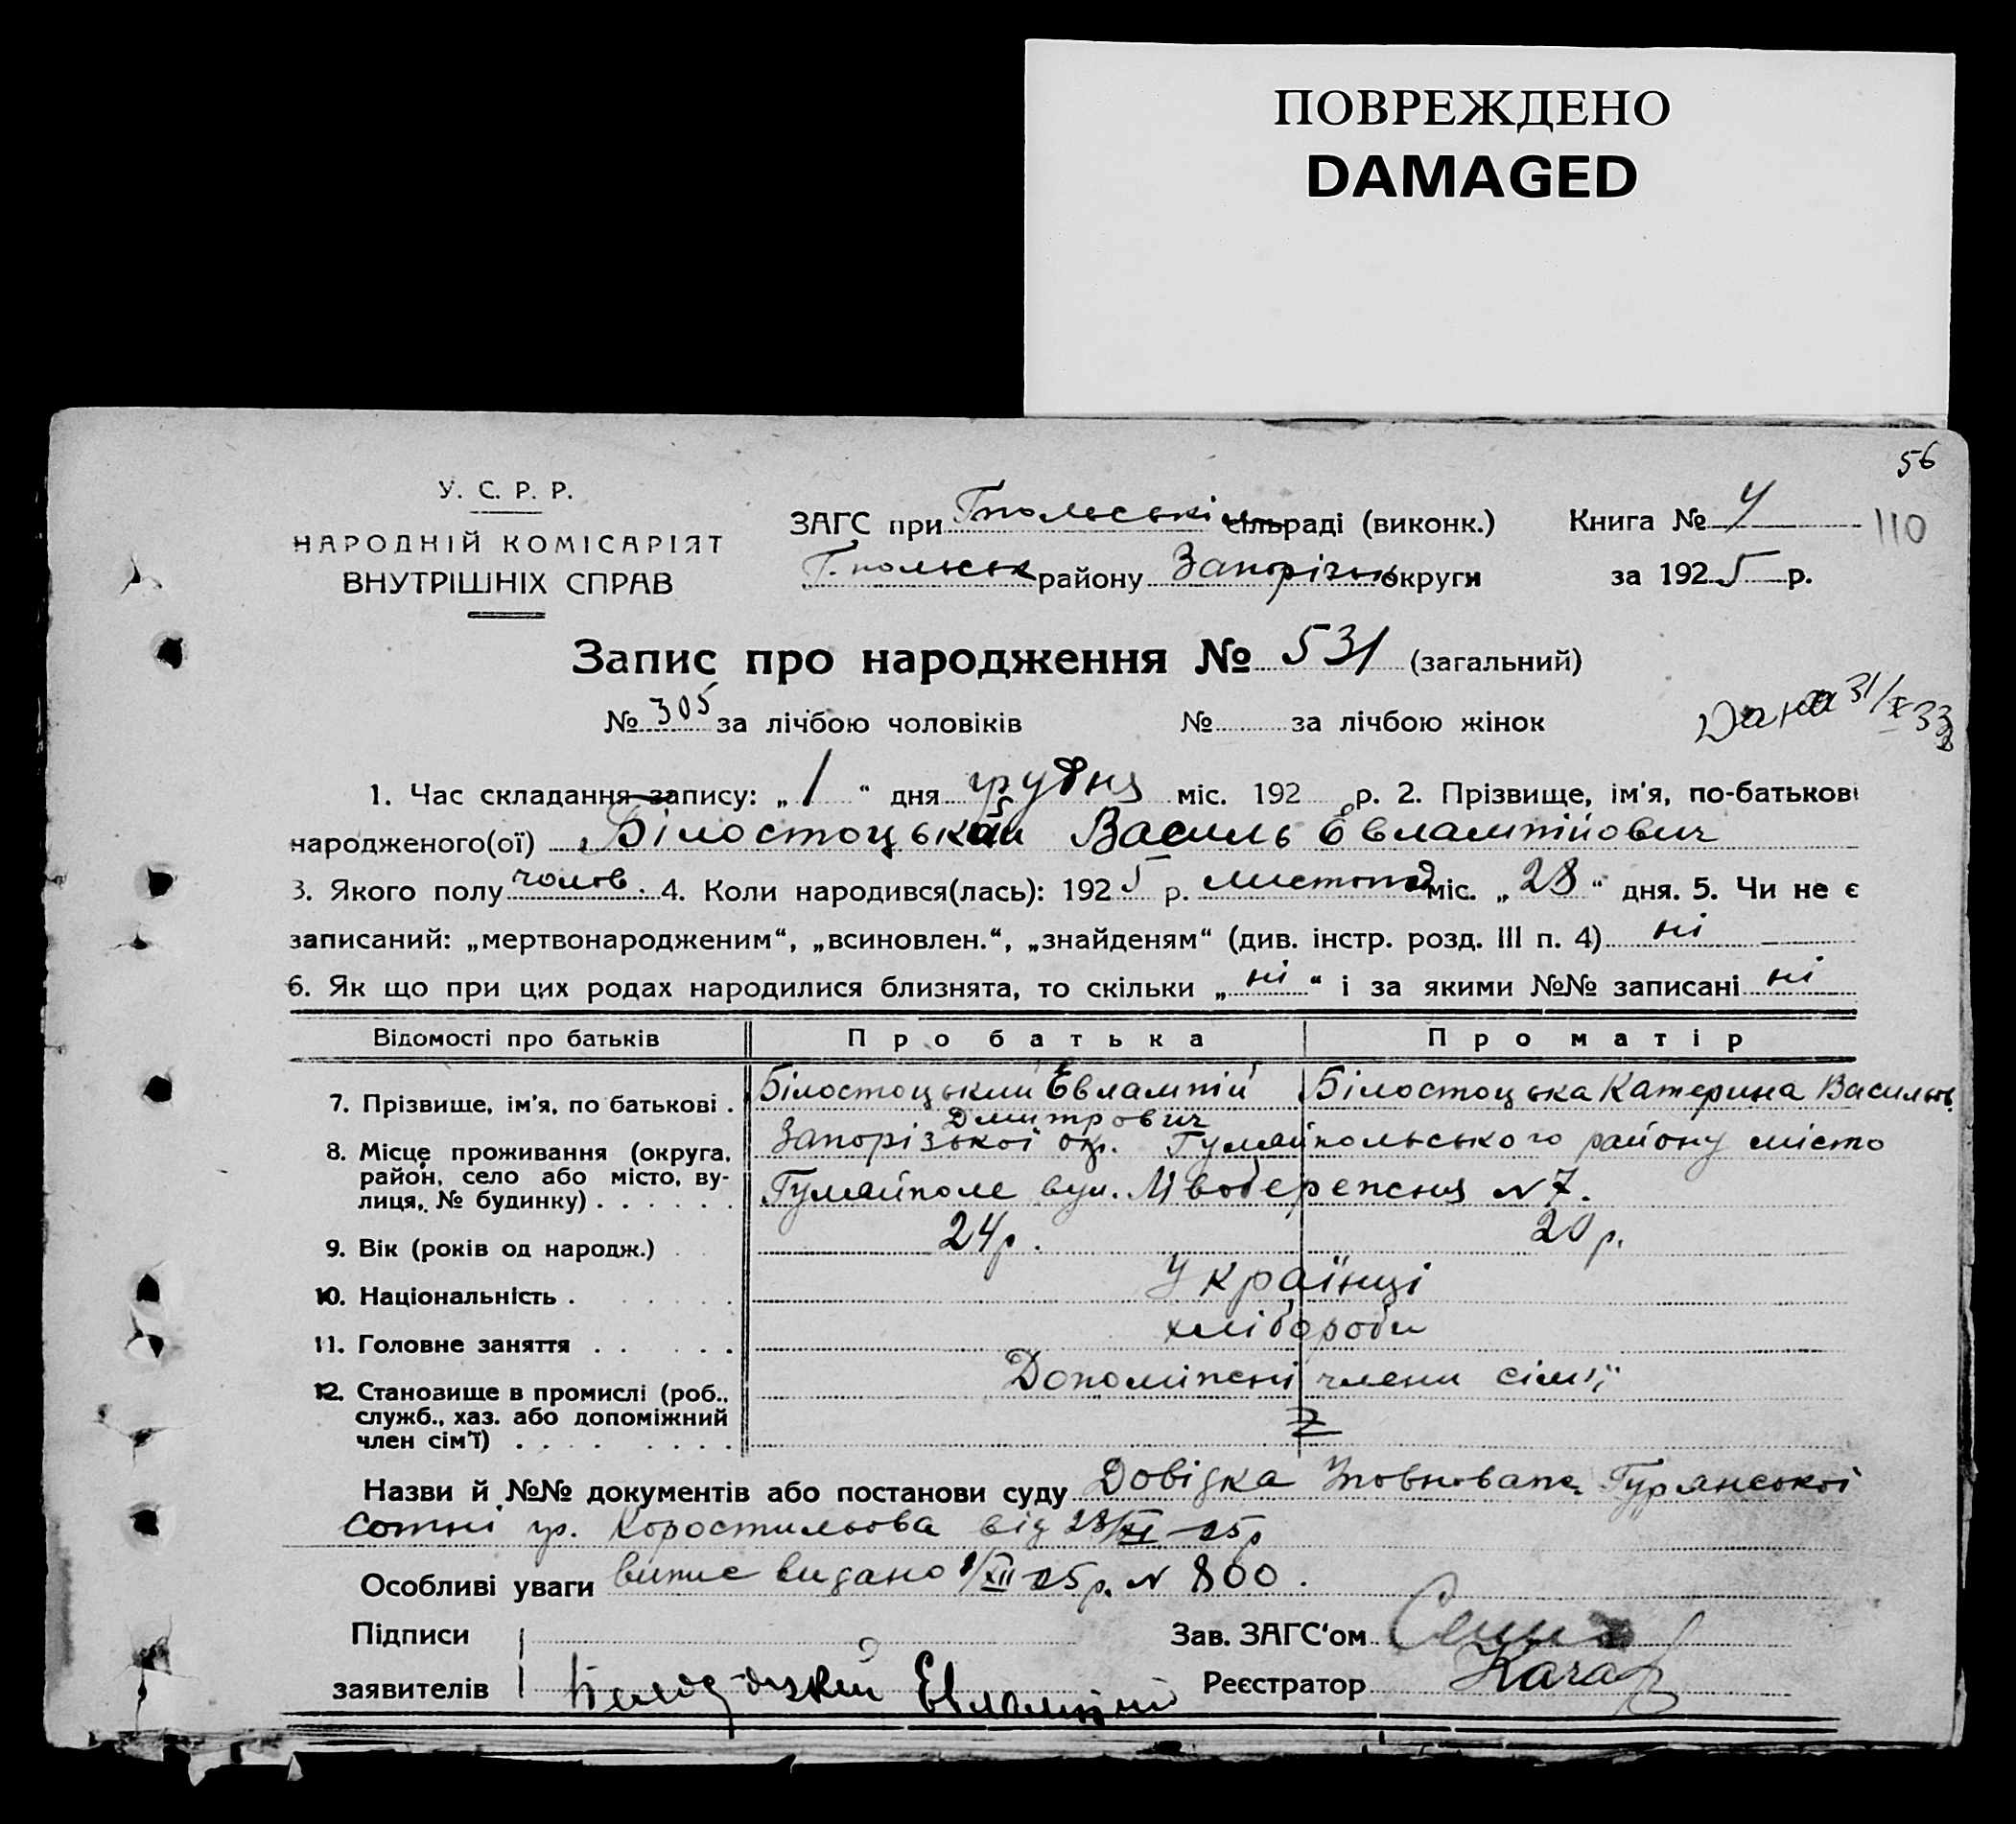 ПОВРЕЖДЕНО
DAMAGED
56
У. С. Р. Р.
НАРОДНІЙ КОМІСАРІЯТ
ВНУТРІШНІХ СПРАВ
ЗАГС при Гпольські сільраді (виконк.) Книга № 4
110
Г.польськ району Запорізьк округи за 1925 р.
Запис про народження № 531 (загальний)
№ 305 за лічбою чоловіків № за лічбою жінок
Дана 31/X 33
1. Час складання запису: „ 1 “ дня грудня міс. 192 5 р. 2. Прізвище, ім'я, по-батькові
народженого(ої) Білостоцький Василь Евлампійович
3. Якого полу чолов. 4. Коли народився(лась): 1925 р. листопад міс. „ 28 “ дня. 5. Чи не є
записаний: „мертвонародженим“, „всиновлен.“, „знайденям“ (див. інстр. розд. III п. 4) ні
6. Як що при цих родах народилися близнята, то скільки „ ні “ і за якими №№ записані ні
Відомості про батьків Про батька Про матір
7. Прізвище, ім'я, по батькові . Білостоцький Евлампій Дмитрович Білостоцька Катерина Васильов.
8. Місце проживання (округа, Запорізької окр. Гуляйпольського району місто
район, село або місто, ву-
лиця, № будинку) . . . . . . Гуляйполе вул. №7.
9. Вік (років од народж.) 24р. 20р.
10. Національність . Українці
11. Головне заняття . . . . . хлібороби
12. Становище в промислі (роб., Допоміжні члени сім'ї
служб., хаз. або допоміжний
член сім'ї) . . . . . . . . 2
Назви й №№ документів або постанови суду Довідка Уповноваж. Гурянської
Сотні гр. Коростильова від 28/XI-25р
Особливі уваги випис видано 1/XII-25р. № 800.
Підписи Зав. ЗАГС‘ом
заявителів Евлампий Реєстратор